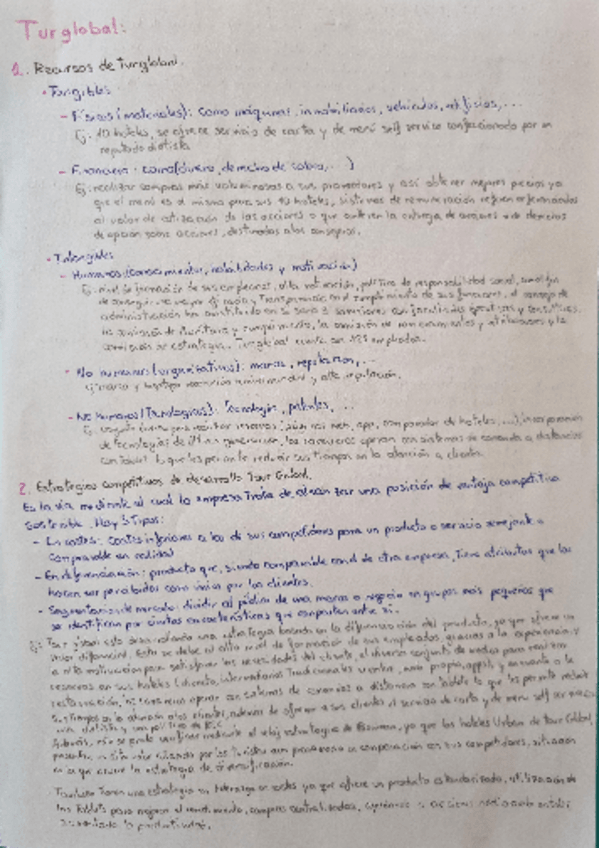 Turglobal:
1. Recursos de Turglobal.
• Tangibles
- Físicos (materiales): como máquinas, inmobiliarios, vehículos, edificios, ...
Ej: 10 hoteles, se ofrece servicio de carta y de menú self service confeccionado por un
reputado dietista.
- Financieros: como (dinero, derecho de cobros, ...)
Ej: realizar compras más voluminosas a sus proveedores y así obtener mejores precios ya
que el menú es el mismo para sus 10 hoteles, sistemas de remuneración referenciados
al valor de cotización de las acciones o que conlleven la entrega de acciones o de derechos
de opción sobre acciones, destinados a los consejeros.
• Intangibles
- Humanos (conocimientos, habilidades y motivación)
Ej: nivel de formación de sus empleados, alta motivación, política de responsabilidad social, con el fin
de conseguir una mayor eficacia y transparencia en el cumplimiento de sus funciones, el consejo de
administración ha constituido en su seno 3 comisiones con facultades ejecutivas y consultivas:
la comisión de auditoría y cumplimiento, la comisión de nombramientos y retribuciones y la
comisión de estrategia. Turglobal cuenta con empleados.
- No humanos (organizativos): marca, reputación, ...
Ej: marca y logotipo mundial y alta reputación.
- No humanos (Tecnológicos): Tecnología, patentes, ...
Ej: reservas (web, app, comparador de hoteles, ...), incorporación
de tecnologías de última generación, los camareros operan con sistemas de comanda a distancia
con tablet lo que les permite reducir sus tiempos en la atención a cliente.
2. Estrategias competitivas de desarrollo Tour Global.
Es la vía mediante el cual la empresa trata de alcanzar una posición de ventaja competitiva
sostenible. Hay 3 tipos:
- En costes: costes inferiores a los de sus competidores para un producto o servicio semejante o
comparable en calidad
- En diferenciación: producto que, siendo comparable con el de otra empresa, tiene atributos que los
hacen ser percibidos como únicos por los clientes.
- Segmentación de mercado: dividir al público de una marca o negocio en grupos más pequeños que
se identifican por ciertas características que comparten entre sí.
Ej: Tour global está desarrollando una estrategia basada en la diferenciación del producto, ya que ofrece un
valor diferencial. Esto se debe al alto nivel de formación de sus empleados, gracias a la experiencia y
a alta motivación para satisfacer las necesidades del cliente, el diverso conjunto de medios para realizar
reservas en sus hoteles (directo, intermediarios tradicionales u online, web propia, apps) y en cuanto a la
restauración, los camareros operan con sistemas de comandas a distancia con tablets lo que les permite reducir
sus tiempos en la atención a los clientes, además de ofrecer a sus clientes el servicio de carta y de menú self service
un dietista y una política de RSC.
Además, esto se puede verificar mediante el reloj estratégico de Bowman, ya que los hoteles Urban de Tour Global,
presentan un por los turistas en comparación con sus competidores, situación
en la que ocurre la estrategia de diversificación.
También tienen una estrategia en liderazgo en costes ya que ofrece un producto estandarizado, utilización de
las tablets para mejorar el rendimiento, compras centralizadas,
aumentando la productividad.